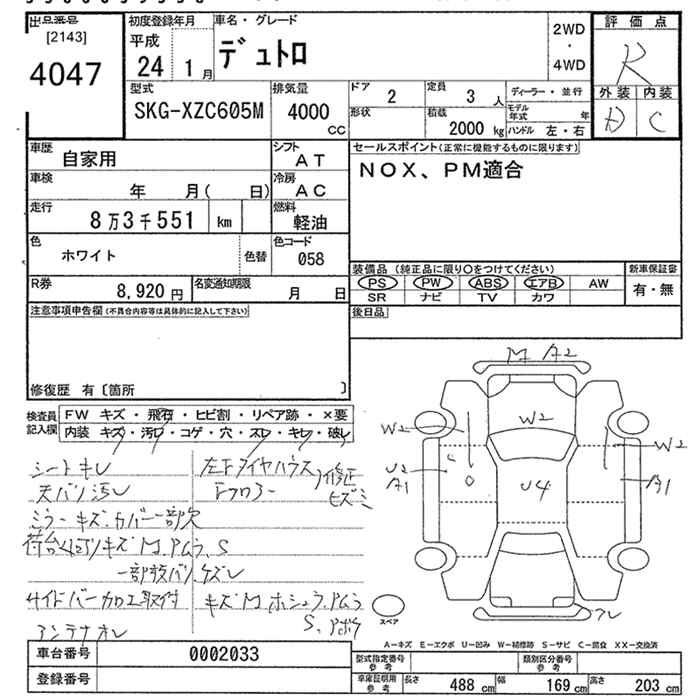 出品番号
[2143]
4047
初度登録年月
平成
24 1月
車名・グレード
デュトロ
2WD
・
4WD
評価点
R
外装 内装
D C
型式
SKG-XZC605M
排気量
4000
CC
ドア
2
定員
3人
ディーラー・並行
形状
積載
2000 kg
モデル年式 年
ハンドル 左・右
車歴
自家用
シフト
AT
車検
年 月( 日)
冷房
AC
走行
8万3千551 km
燃料
軽油
色
ホワイト
色替
色コード
058
R券
8,920円
名変通知期限
月 日
セールスポイント(正常に機能するものに限ります)
NOX、PM適合
装備品(純正品に限り○をつけてください)
PS PW ABS エアB AW
SR ナビ TV カワ
新車保証書
有・無
後日品
注意事項申告欄(不具合内容等は具体的に記入して下さい)
修復歴 有〔箇所 〕
検査員記入欄
FW キズ・飛石・ヒビ割・リペア跡・×要
内装 キズ・汚レ・コゲ・穴・スレ・キレ・破レ
シートキレ
天バリ汚レ
ミラーキズ、カバー一部欠
荷台 キズ M、アムラ、S
サイドバー加工取付
アンテナオレ
左F タイヤハウス
Fフロアー
修正
ヒズミ
キズ M ホシュラ、アムラ
M A2
W2
W2
W2
U2
A1
U4
A1
スペア
A－キズ E－エクボ U－凹み W－補修跡 S－サビ C－腐食 XX－交換済
車台番号
0002033
登録番号
型式指定番号
参考
類別区分番号
参考
車庫証明用
参考
長さ 488 cm 幅 169 cm 高さ 203 cm